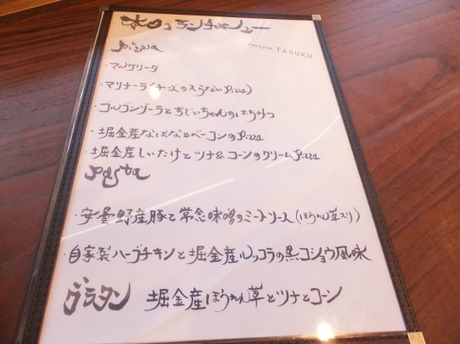 本日のランチメニュー
TASUKU
Pizza
・マルゲリータ
・マリナーラ(チーズのスらないPizza)
・ゴルゴンゾーラとおじいちゃんのはちみつ
・堀金産なばなとベーコンのPizza
・堀金産しいたけとツナ&コーンのクリームPizza
Pasta
・安曇野産豚と常念味噌のミートソース(ほうれん草入り)
・自家製ハーブチキンと堀金産ルッコラの黒コショウ風味
グラタン 堀金産ほうれん草とツナとコーン